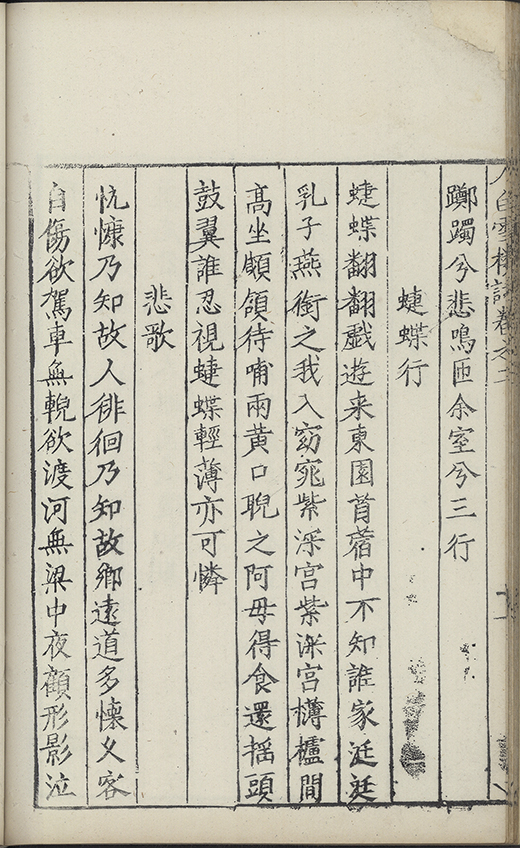 白雪樓詩卷之二
躑躅兮悲鳴匝余室兮三行
蜨蝶行
蜨蝶翻翻戲遊来東園苜蓿中不知誰家涎涎
乳子燕銜之我入窈窕紫深宫紫深宫欂櫨間
高坐顑頷待哺兩黄口睨之阿母得食還揺頭
鼓翼誰忍視蜨蝶輕薄亦可憐
悲歌
忼慷乃知故人徘徊乃知故鄉遠道多懷久客
自傷欲駕車無輗欲渡河無梁中夜顧形影泣